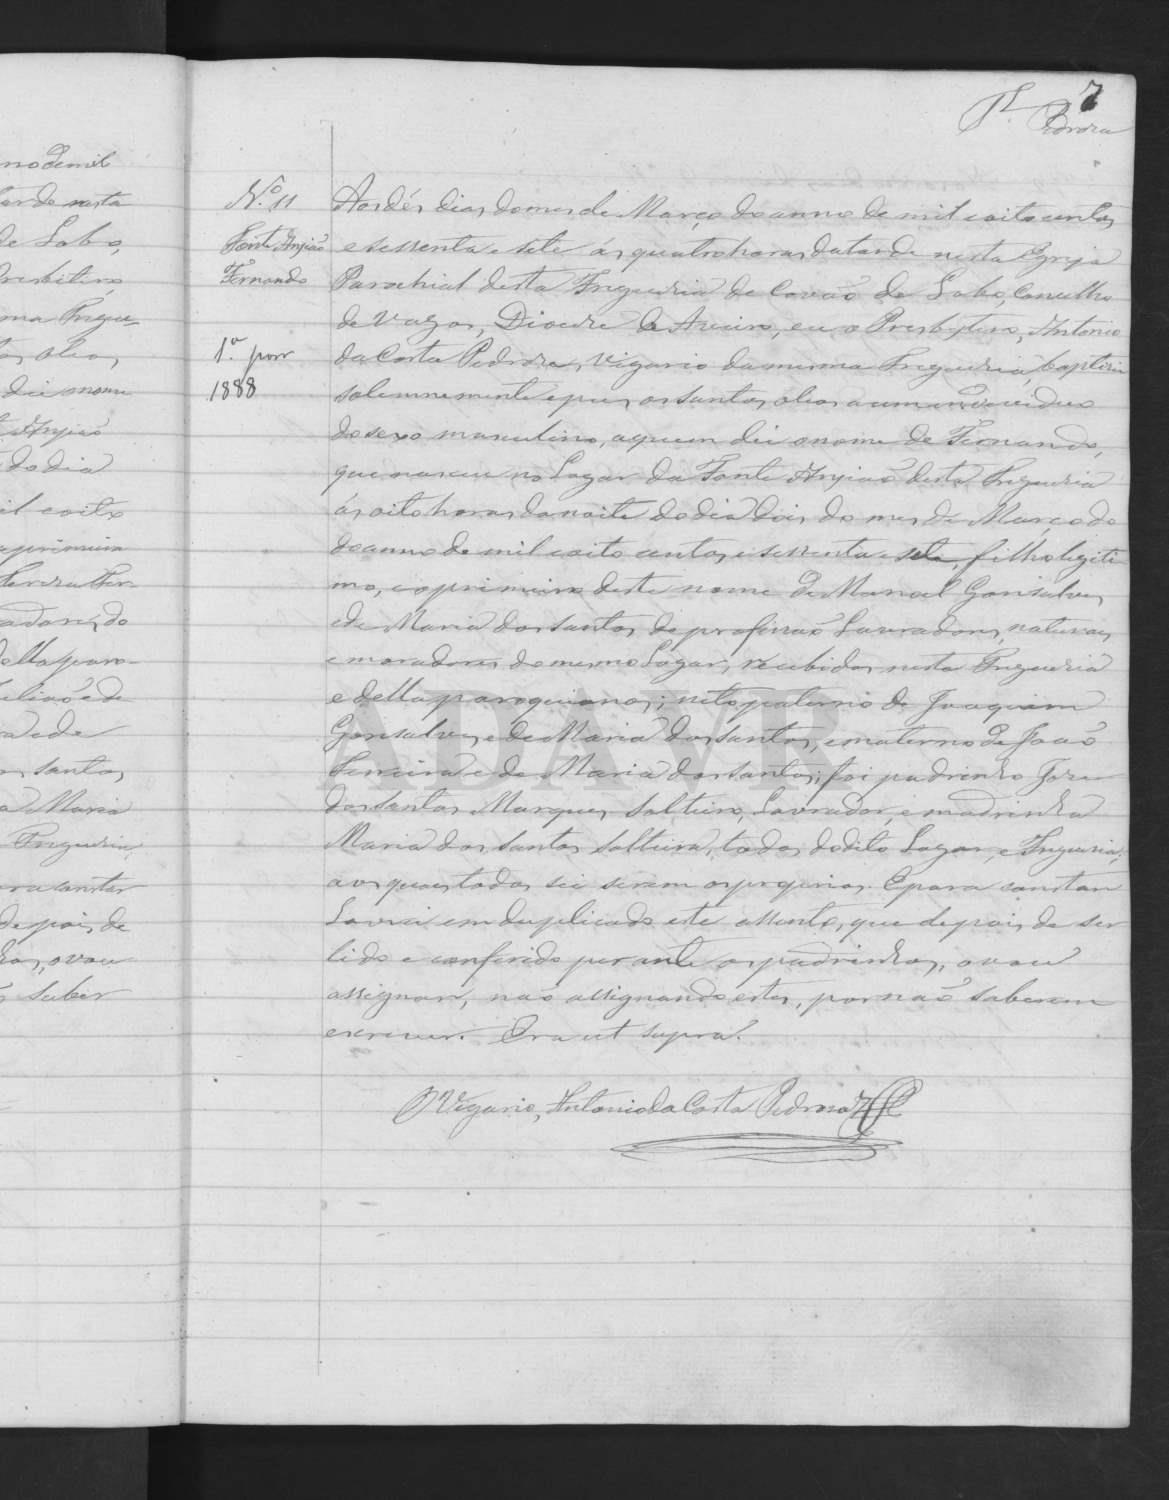 7
Pedroza
no de mil
tarde nesta
de Sobo,
Presbitero
ma Fregue-
os oleos,
dei o nome
do dia
il eoito
a primeira
adores, do
della paro-
a e de
os santos
a Maria
Freguezia,
era constar
depois de
o vou
saber
N.º 11
Fonte Anjião
Fernando
1.ª por
1888
Aos dés dias do mes de Março do anno de mil eoito centos
e sessenta e sete ás quatro horas da tarde nesta Egreja
Parochial desta Freguezia de Covão de Lobo, Concelho
de Vagos, Diocese de Aveiro, eu o Presbytero, Antonio
da Costa Pedroza, Vigario da mesma Freguezia, baptizei
solemnemente e pus os santos oleos a um individuo
do sexo masculino, a quem dei o nome de Fernando,
que nasceu no Logar da Fonte Anjião desta Freguezia
ás oito horas da noite do dia dois do mes de Março do
do anno de mil eoito centos e sessenta e sete, filho legiti
mo, e o primeiro deste nome de Manoel Gonsalves
e de Maria dos Santos, de profissão Lavradores, naturaes
e moradores do mesmo Logar, recebidos nesta Freguezia
e della paroquianos; neto paterno de Joaquim
Gonsalves e de Maria dos santos, e materno de João
Ferreira e de Maria dos santos; foi padrinho Joze
dos santos Marques, solteiro, Lavrador, e madrinha
Maria dos santos solteira, todos do dito Logar, e Freguezia,
aos quaes todos sei serem os proprios. E para constar
Lavrei em duplicado este assento, que depois de ser
lido e conferido perante os padrinhos, o vou
assignar, não assignando estes, por não saberem
escrever. Era ut supra.
O Vigario, Antonio da Costa Pedroza
ADAVR